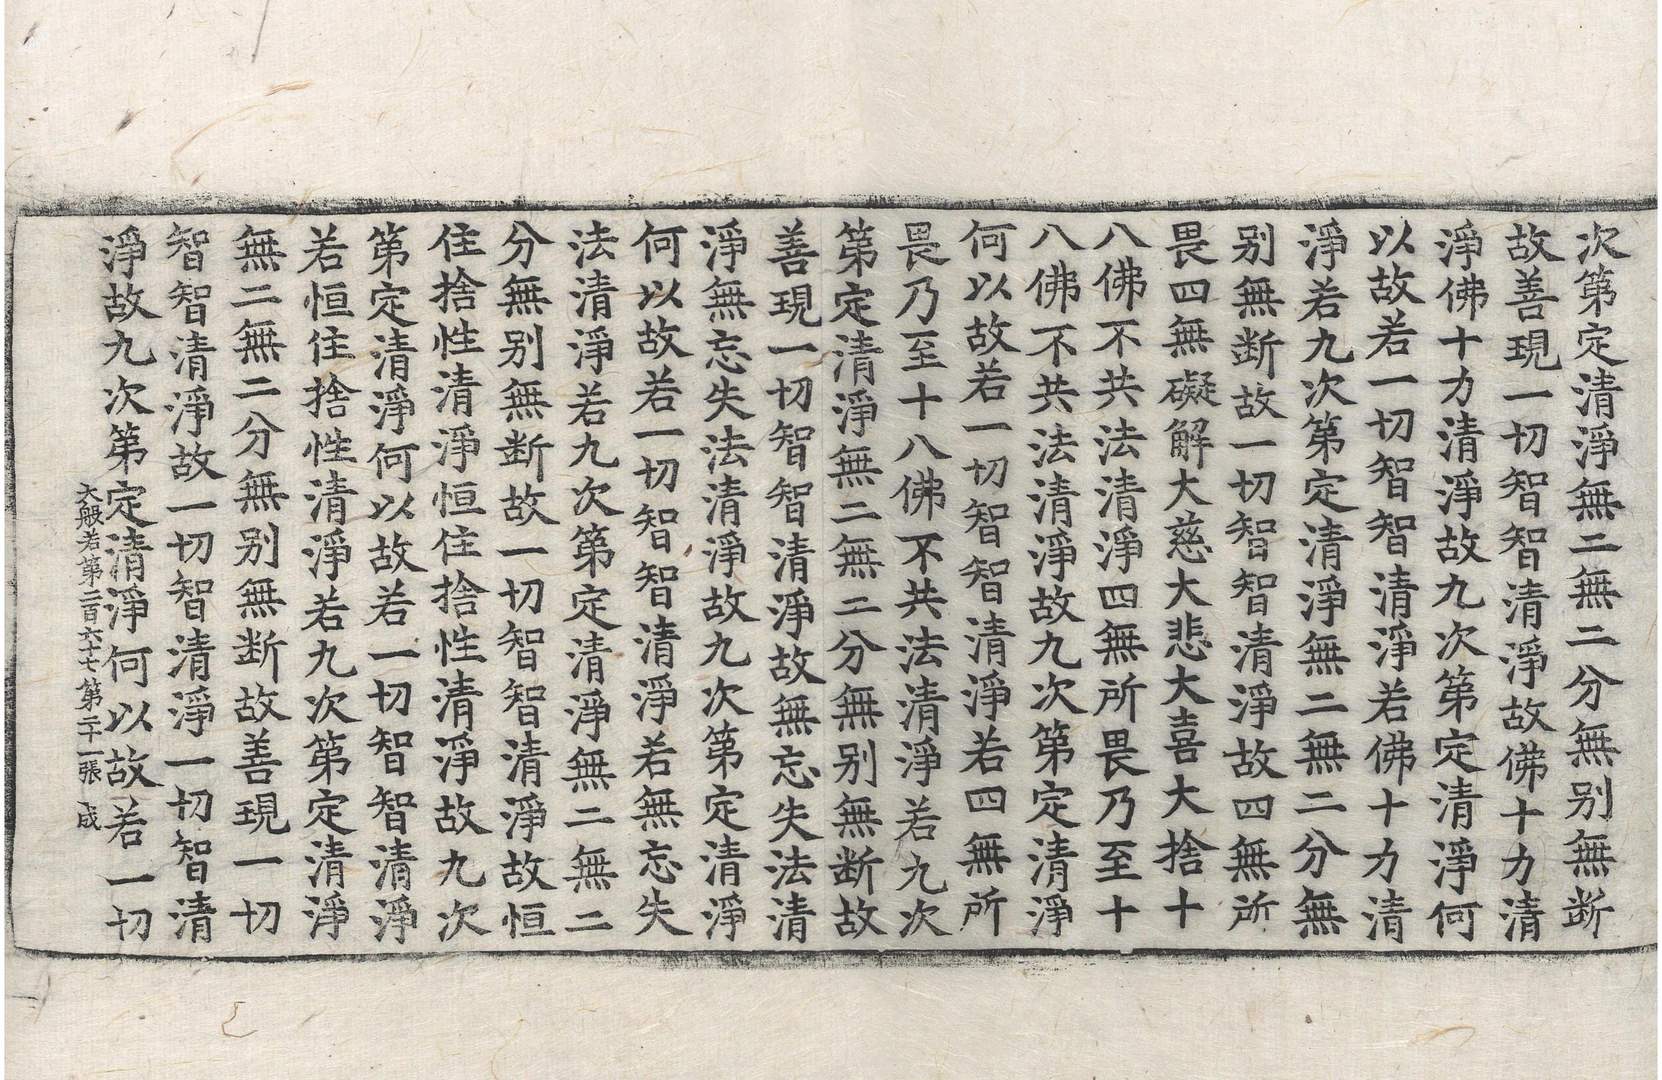 次第定清淨無二無二分無别無断
故善現一切智智清淨故佛十力清
淨佛十力清淨故九次第定清淨何
以故若一切智智清淨若佛十力清
淨若九次第定清淨無二無二分無
别無断故一切智智清淨故四無所
畏四無礙解大慈大悲大喜大捨十
八佛不共法清淨四無所畏乃至十
八佛不共法清淨故九次第定清淨
何以故若一切智智清淨若四無所
畏乃至十八佛不共法清淨若九次
第定清淨無二無二分無别無断故
善現一切智智清淨故無忘失法清
淨無忘失法清淨故九次第定清淨
何以故若一切智智清淨若無忘失
法清淨若九次第定清淨無二無二
分無别無断故一切智智清淨故恒
住捨性清淨恒住捨性清淨故九次
第定清淨何以故若一切智智清淨
若恒住捨性清淨若九次第定清淨
無二無二分無别無断故善現一切
智智清淨故一切智清淨一切智清
淨故九次第定清淨何以故若一切
大般若第二百六十七 第二十一張 成